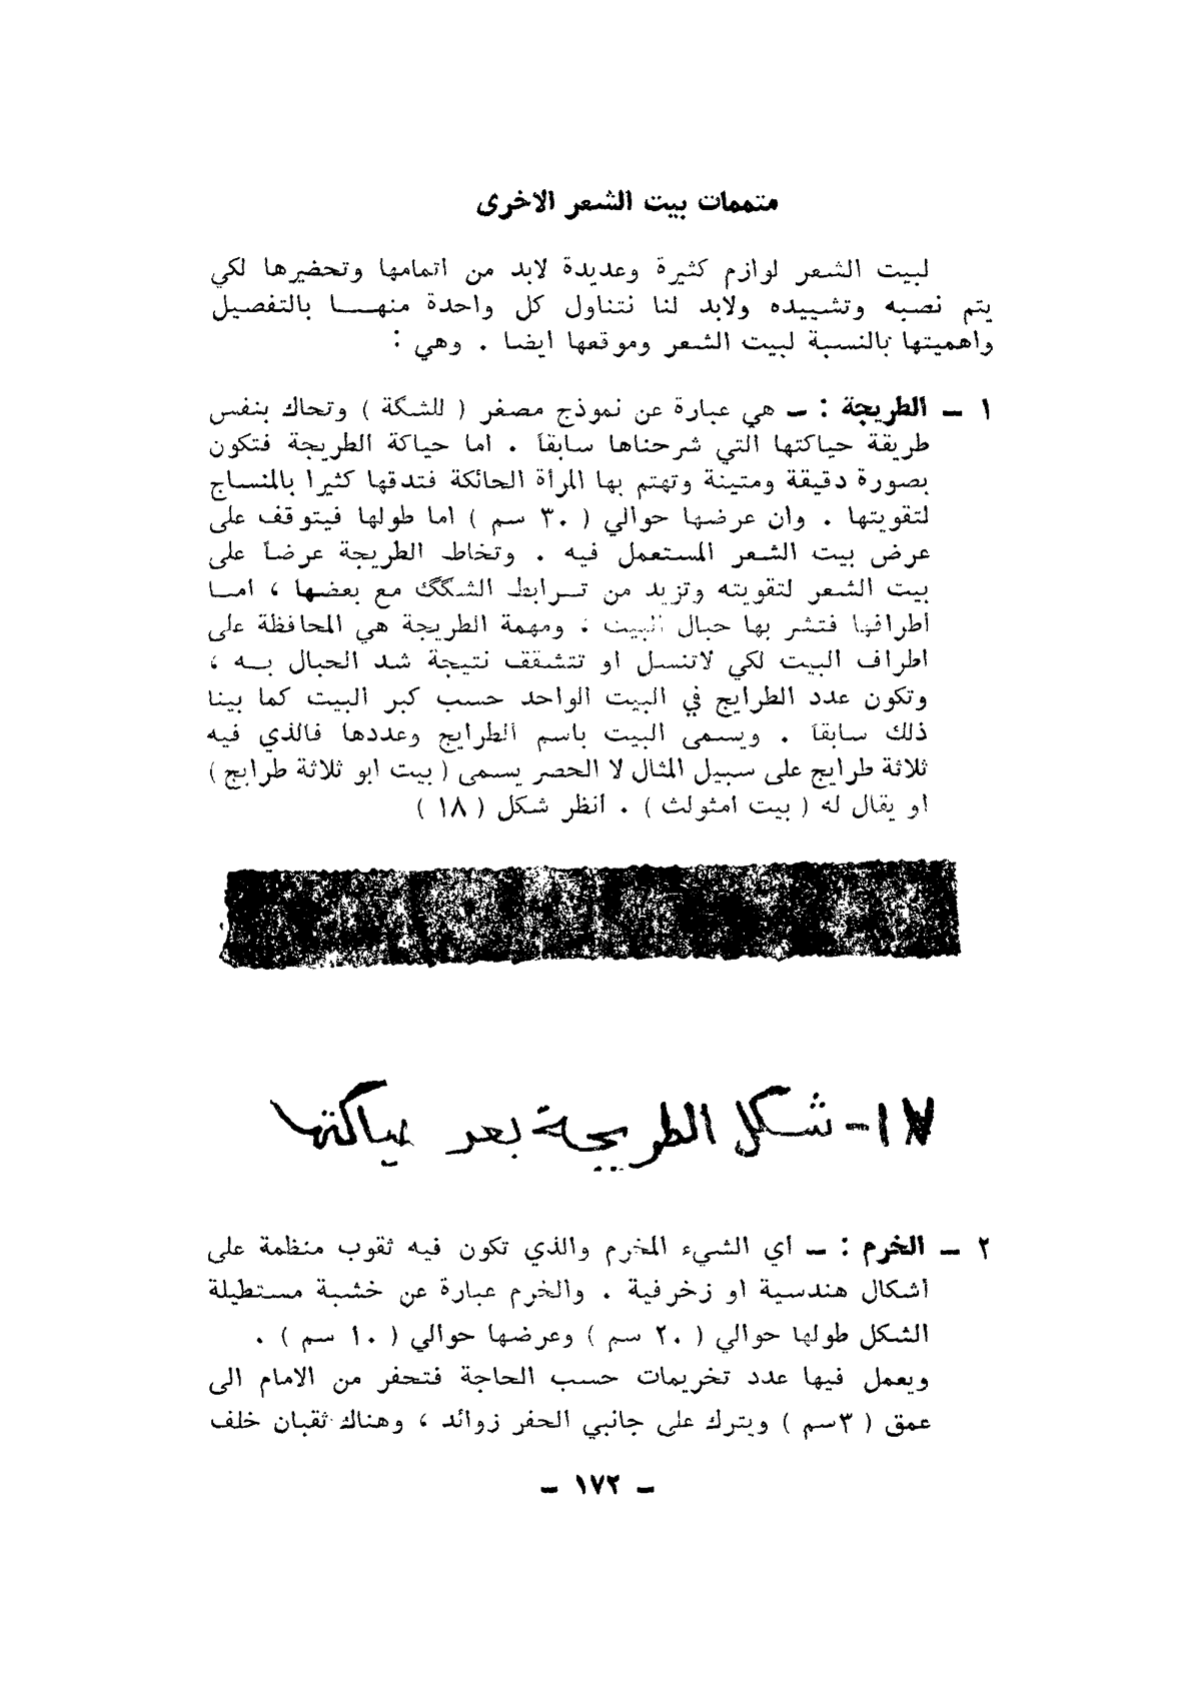 متممات بيت الشعر الاخرى
لبيت الشعر لوازم كثيرة وعديدة لابد من اتمامها وتحضيرها لكي
يتم نصبه وتشييده ولابد لنا نتناول كل واحدة منهـــا بالتفصيل
واهميتها بالنسبة لبيت الشعر وموقعها ايضا . وهي :
١ ــ الطريجة : ــ هي عبارة عن نموذج مصغر ( للشگة ) وتحاك بنفس
طريقة حياكتها التي شرحناها سابقاً . اما حياكة الطريجة فتكون
بصورة دقيقة ومتينة وتهتم بها المرأة الحائكة فتدقها كثيرا بالمنساج
لتقويتها . وان عرضها حوالي ( ٣٠ سم ) اما طولها فيتوقف على
عرض بيت الشعر المستعمل فيه . وتخاط الطريجة عرضاً على
بيت الشعر لتقويته وتزيد من تـرابط الشگگ مع بعضها ، امـا
أطرافها فتشر بها حبال البيت . ومهمة الطريجة هي المحافظة على
اطراف البيت لكي لاتنسل او تتشقق نتيجة شد الحبال بـه ،
وتكون عدد الطرايج في البيت الواحد حسب كبر البيت كما بينا
ذلك سابقاً . ويسمى البيت باسم الطرايج وعددها فالذي فيه
ثلاثة طرايج على سبيل المثال لا الحصر يسمى ( بيت ابو ثلاثة طرايج )
او يقال له ( بيت امثولث ) . انظر شكل ( ١٨ )
١٨- شكل الطريجة بعد حياكتها
٢ ــ الخرم : ــ اي الشيء المخرم والذي تكون فيه ثقوب منظمة على
اشكال هندسية او زخرفية . والخرم عبارة عن خشبة مستطيلة
الشكل طولها حوالي ( ٢٠ سم ) وعرضها حوالي ( ١٠ سم ) .
ويعمل فيها عدد تخريمات حسب الحاجة فتحفر من الامام الى
عمق ( ٣سم ) ويترك على جانبي الحفر زوائد ، وهناك ثقبان خلف
ــ ١٧٢ ــ